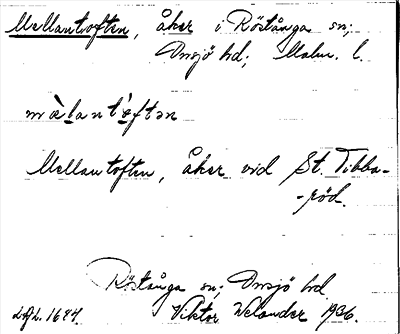 Mellantoften, åker i Röstånga sn;
Onsjö hd; Malm. l.
mὰlantὸftən
Mellantoften, åker vid St. Tibba-
-röd.
Röstånga sn; Onsjö hd.
Viktor Welander 1936.